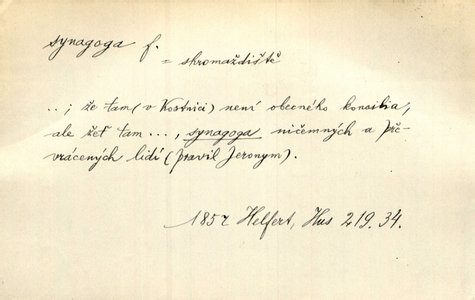 synagoga f.
= shromaždiště
..; že tam (v Kostnici) není obecného koncilia,
ale žeť tam ..., synagoga ničemných a pře-
vrácených lidí (pravil Jeronym).
1857 Helfert, Hus 219.34.